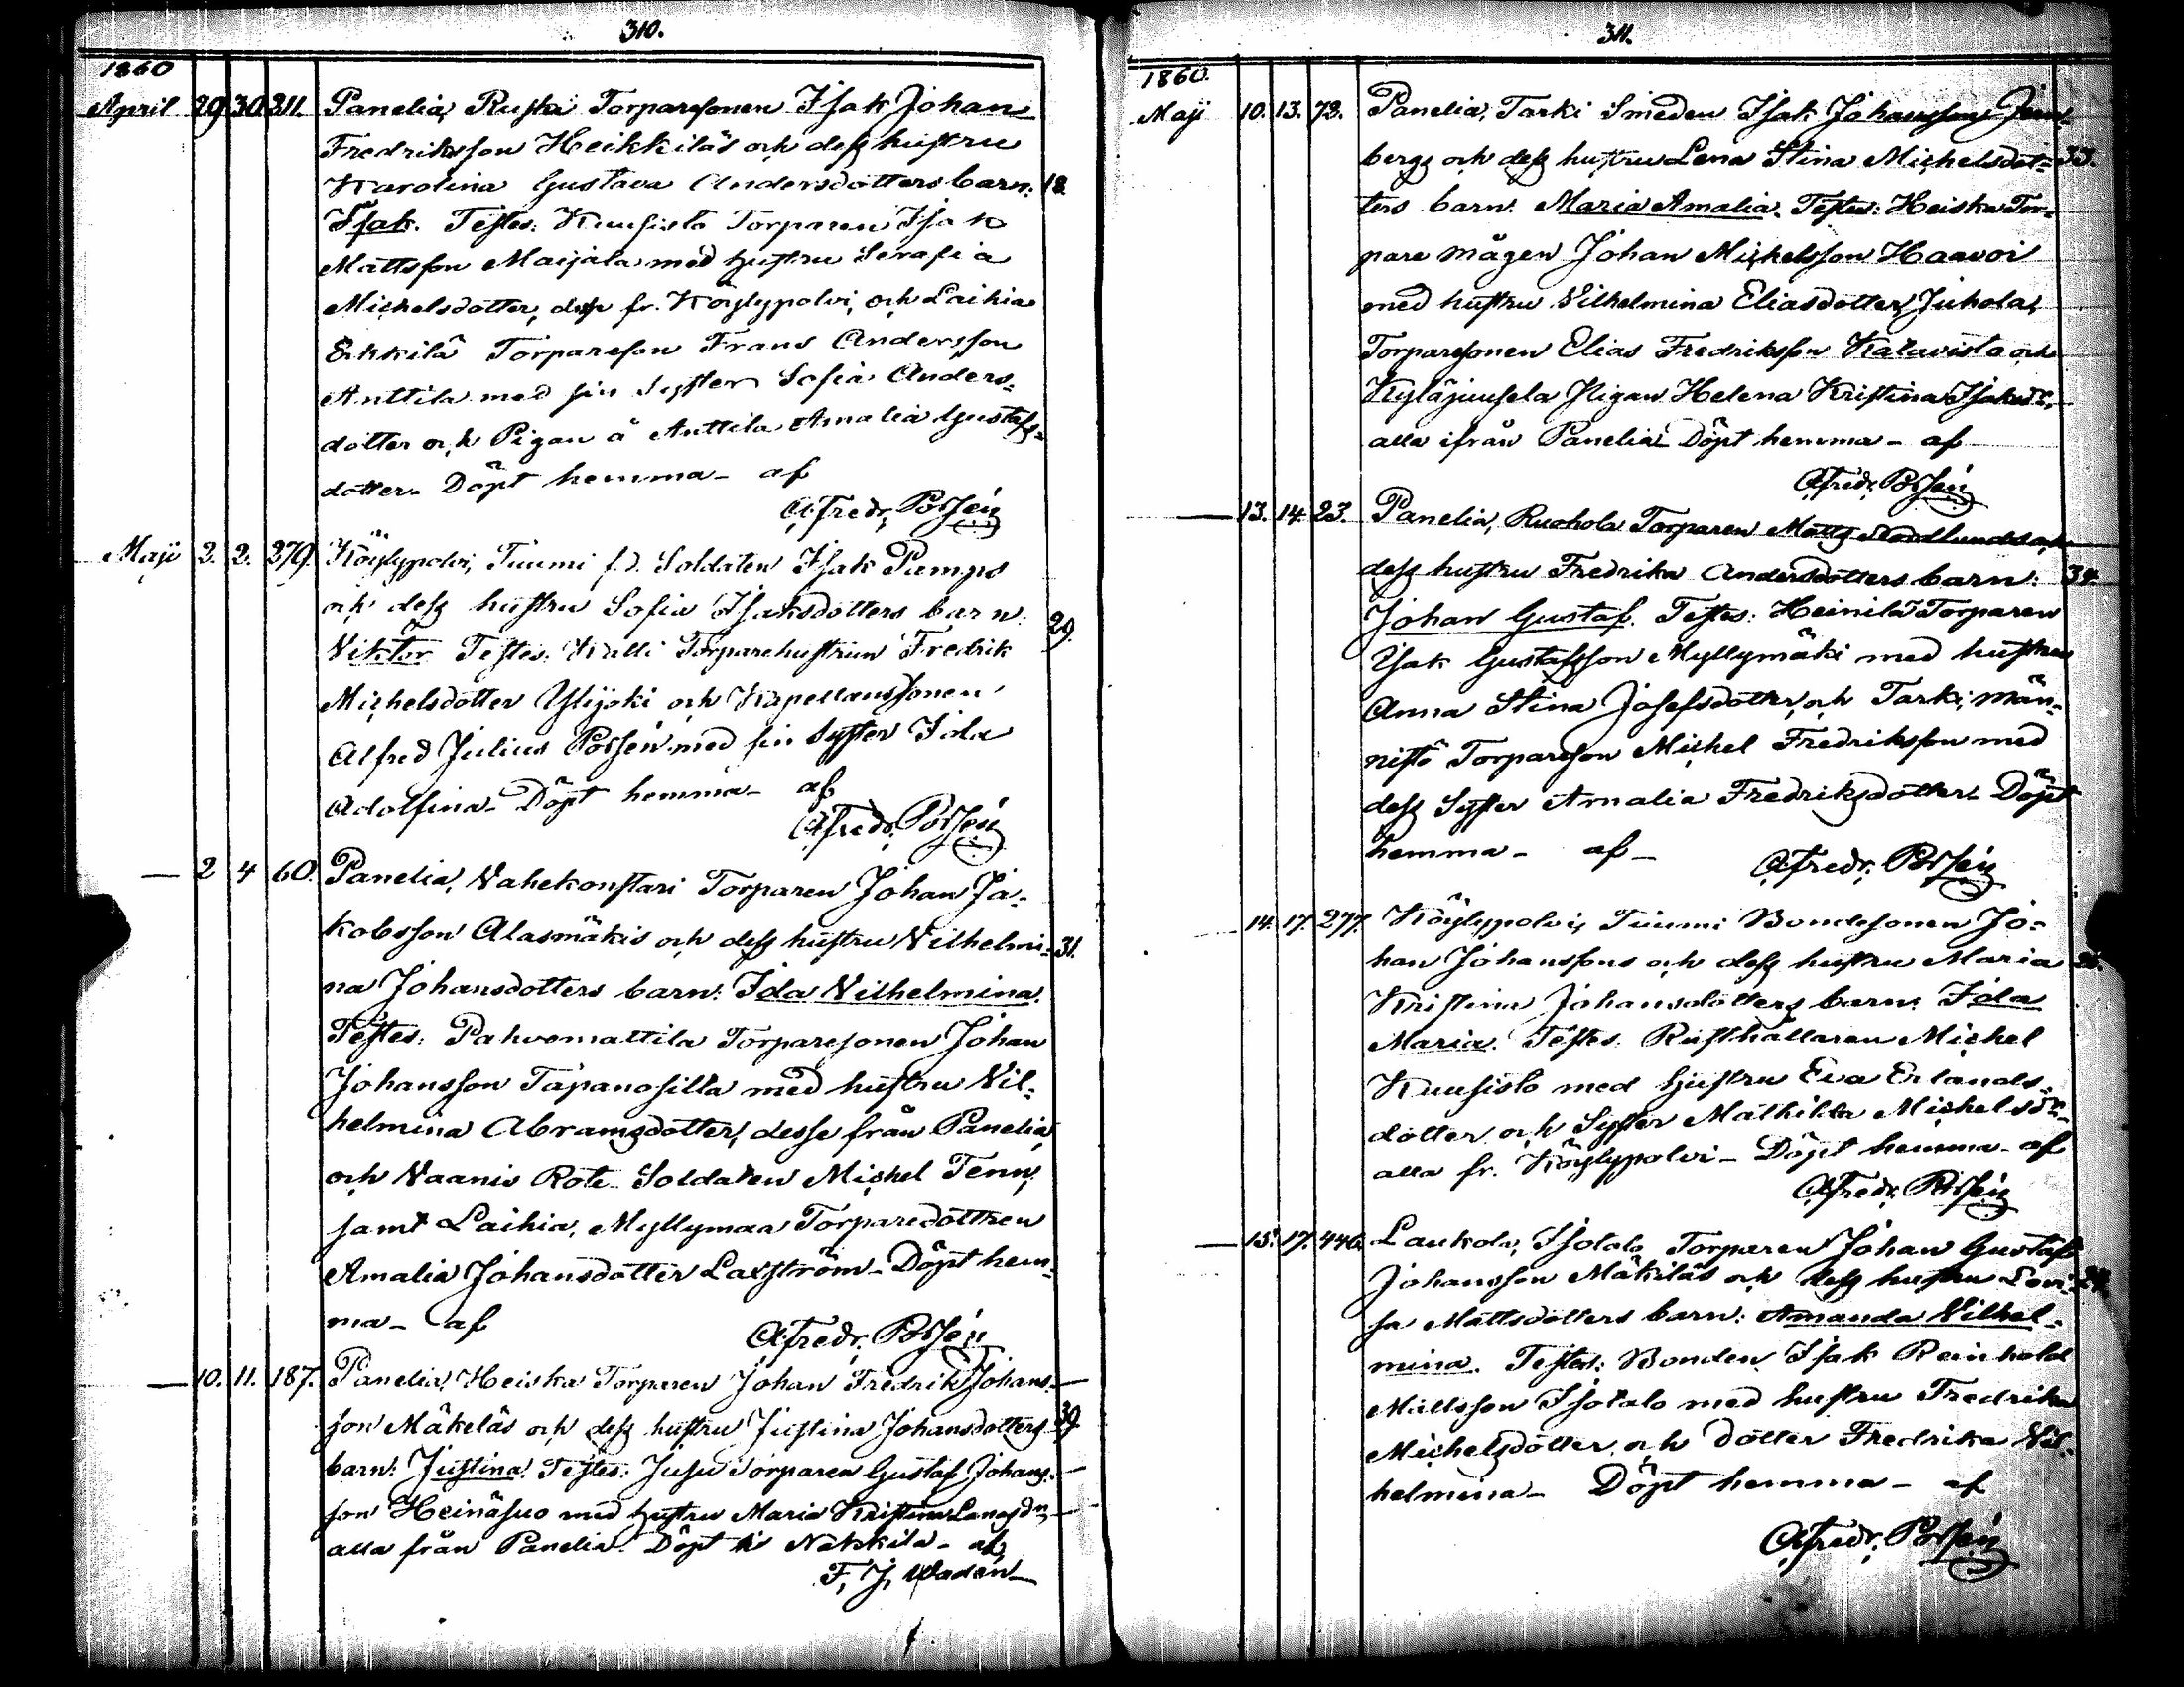 310.
1860
April 29. 30. 311. Panelia, Ruska Torparesonen Isak Johan
Fredriksson Heikkiläs och dess hustru
Karolina Gustava Andersdotters barn: 18.
Isak. Testes: Kuusisto Torparen Isak
Mattsson Maijala med hustru Serafia
Michelsdotter, desse fr. Köylypolvi, och Laihia
Erkkilä Torpareson Frans Andersson
Anttila med sin Syster Sofia Anders-
dotter och Pigan å Anttila Amalia Gustafs-
dotter. Döpt hemma – af
A. Fredr. Porsén
Maji 2. 2. 279. Köylypolvi, Tuumi f.d. Soldaten Isak Pumps
och dess hustru Sofia Isaksdotters barn: 29.
Viktor. Testes: Kalli Torparehustrun Fredrik
Michelsdotter Ylijoki och Kapellanssonen
Alfred Julius Porsén med sin Syster Ida
Adolfina. Döpt hemma – af
A. Fredr. Porsén
— 2 4 60. Panelia, Vahekonstari Torparen Johan Ja-
kobsson Alasmäkis och dess hustru Vilhelmi- 31.
na Johansdotters barn: Ida Vilhelmina.
Testes: Pahvomattila Torparesonen Johan
Johansson Tapanosilta med hustru Vil-
helmina Abramsdotter, desse från Panelia,
och Naanis Rote Soldaten Michel Tenn,
samt Laihia, Myllymaa Torparedottren
Amalia Johansdotter Laxström. Döpt hem-
ma – af
A. Fredr. Porsén
— 10. 11. 187. Panelia, Heiska Torparen Johan Fredrik Johans-
son Mäkeläs och dess hustru Justina Johansdotters 39.
barn: Justina. Testes: Jusu Torparen Gustaf Johans-
son Heinäsuo med hustru Maria Kristina
alla från Panelia. Döpt i Nakkila – af
F. J. Wadén

311.
1860.
Maji 10. 13. 72. Panelia, Tarki Smeden Isak Johansson
bergs och dess hustru Lena Stina Michelsdot- 33.
ters barn: Maria Amalia. Testes: Heiska Tor-
pare mågen Johan Michelsson Haavoi
med hustru Vilhelmina Eliasdotter, Juhola,
Torparesonen Elias Fredriksson Katavisto och
Kyläjuusela Pigan Helena Kristina Isaksdr.,
alla ifrån Panelia. Döpt hemma – af
A. Fredr. Porsén
— 13. 14. 23. Panelia, Ruohola Torparen Matts Nordlunds och
dess hustru Fredrika Andersdotters barn: 34.
Johan Gustaf. Testes: Heinilä Torparen
Isak Gustafsson Myllymäki med hustru
Anna Stina Josefsdotter, och Tarki, Män-
nistö Torpareson Michel Fredriksson med
dess Syster Amalia Fredriksdotter. Döpt
hemma – af –
A. Fredr. Porsén
14. 17. 277. Köylypolvi, Tuumi Bondesonen Jo-
han Johanssons och dess hustru Maria
Kristina Johansdotters barn: Ida
Maria. Testes: Rusthållaren Michel
Kuusisto med hustru Eva Erlands-
dotter och Syster Mathilda Michelsdr.
alla fr. Köylypolvi – Döpt hemma – af
A. Fredr. Porsén
— 15. 17. 446. Laukola, Isotalo Torparen Johan Gustaf
Johansson Mäkiläs och dess hustru Lovi-
sa Mattsdotters barn: Amanda Vilhel-
mina. Testes: Bonden Isak Reinhold
Mattsson Isotalo med hustru Fredrika
Michelsdotter och dotter Fredrika Vil-
helmina – Döpt hemma – af
A. Fredr. Porsén